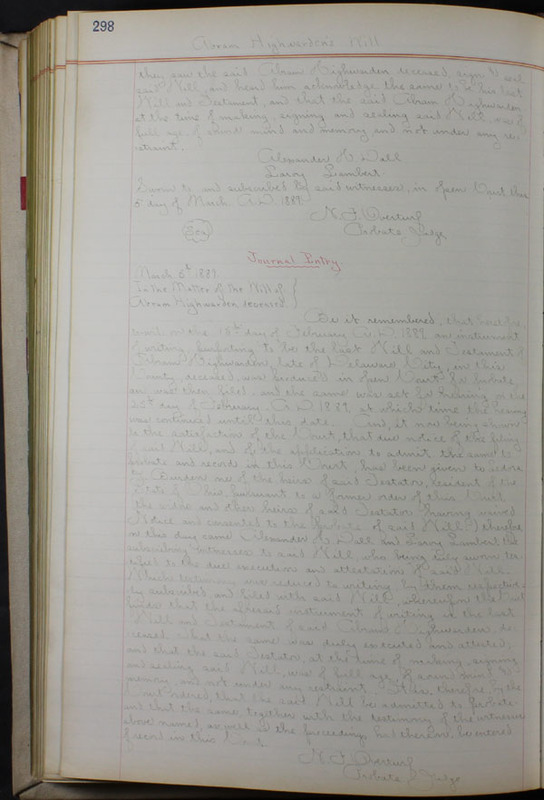 298
Abram Highwarden's Will
they saw the said Abram Highwarden deceased, sign & seal
said Will, and heard him acknowledge the same to be his last
Will and Testament, and that the said Abram Highwarden
at the time of making, signing and sealing said Will, was of
full age, of sound mind and memory and not under any re-
straint.
Alexander H. Wall
Leroy Lambert
Sworn to and subscribed by said witnesses, in open Court this
5th day of March A.D. 1889.
N. F. Overturf
Probate Judge
Seal
Journal Entry
March 5th 1889.
In the Matter of the Will of
Abram Highwarden deceased.
Be it remembered, that heretofore
to wit on the 18th day of February A.D. 1889 an instrument
of writing, purporting to be the last Will and Testament of
Abram Highwarden, late of Delaware City, in this
County, deceased, was produced in open Court for probate
and was then filed, and the same was set for hearing on the
25th day of February A.D. 1889 at which time the hearing
was continued until this date. And, it now being shown
to the satisfaction of the Court, that due notice of the filing
of said Will, and of the application to admit the same to
probate and record in this Court, has been given to
one of the heirs of said Testator, resident of the
State of Ohio, pursuant to a former order of this Court,
the widow and other heirs of said Testator having waived
Notice and consented to the probate of said Will, therefore
on this day came Alexander H. Wall and Leroy Lambert the
subscribing witnesses to said Will, who being duly sworn tes-
tified to the due execution and attestation of said Will.
Which testimony was reduced to writing, by them respective-
ly subscribed, and filed with said Will, whereupon the Court
finds that the aforesaid instrument of writing is the last
Will and Testament of said Abram Highwarden, de-
ceased, that the same was duly executed and attested,
and that the said Testator, at the time of making, signing
and sealing said Will, was of full age, of sound mind &
memory, and not under any restraint. It is, therefore, by the
Court ordered, that the said Will be admitted to probate
and that the same, together with the testimony of the witnesses
above named, as well as the proceedings had thereon be entered
of record in this Court.
N. F. Overturf
Probate Judge